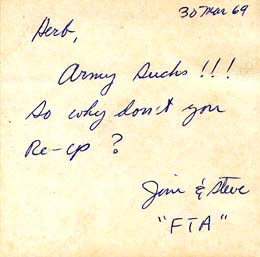 30 Mar 69
Herb,
Army Sucks !!!
So why don't you
Re-up ?
Jim & Steve
"FTA"